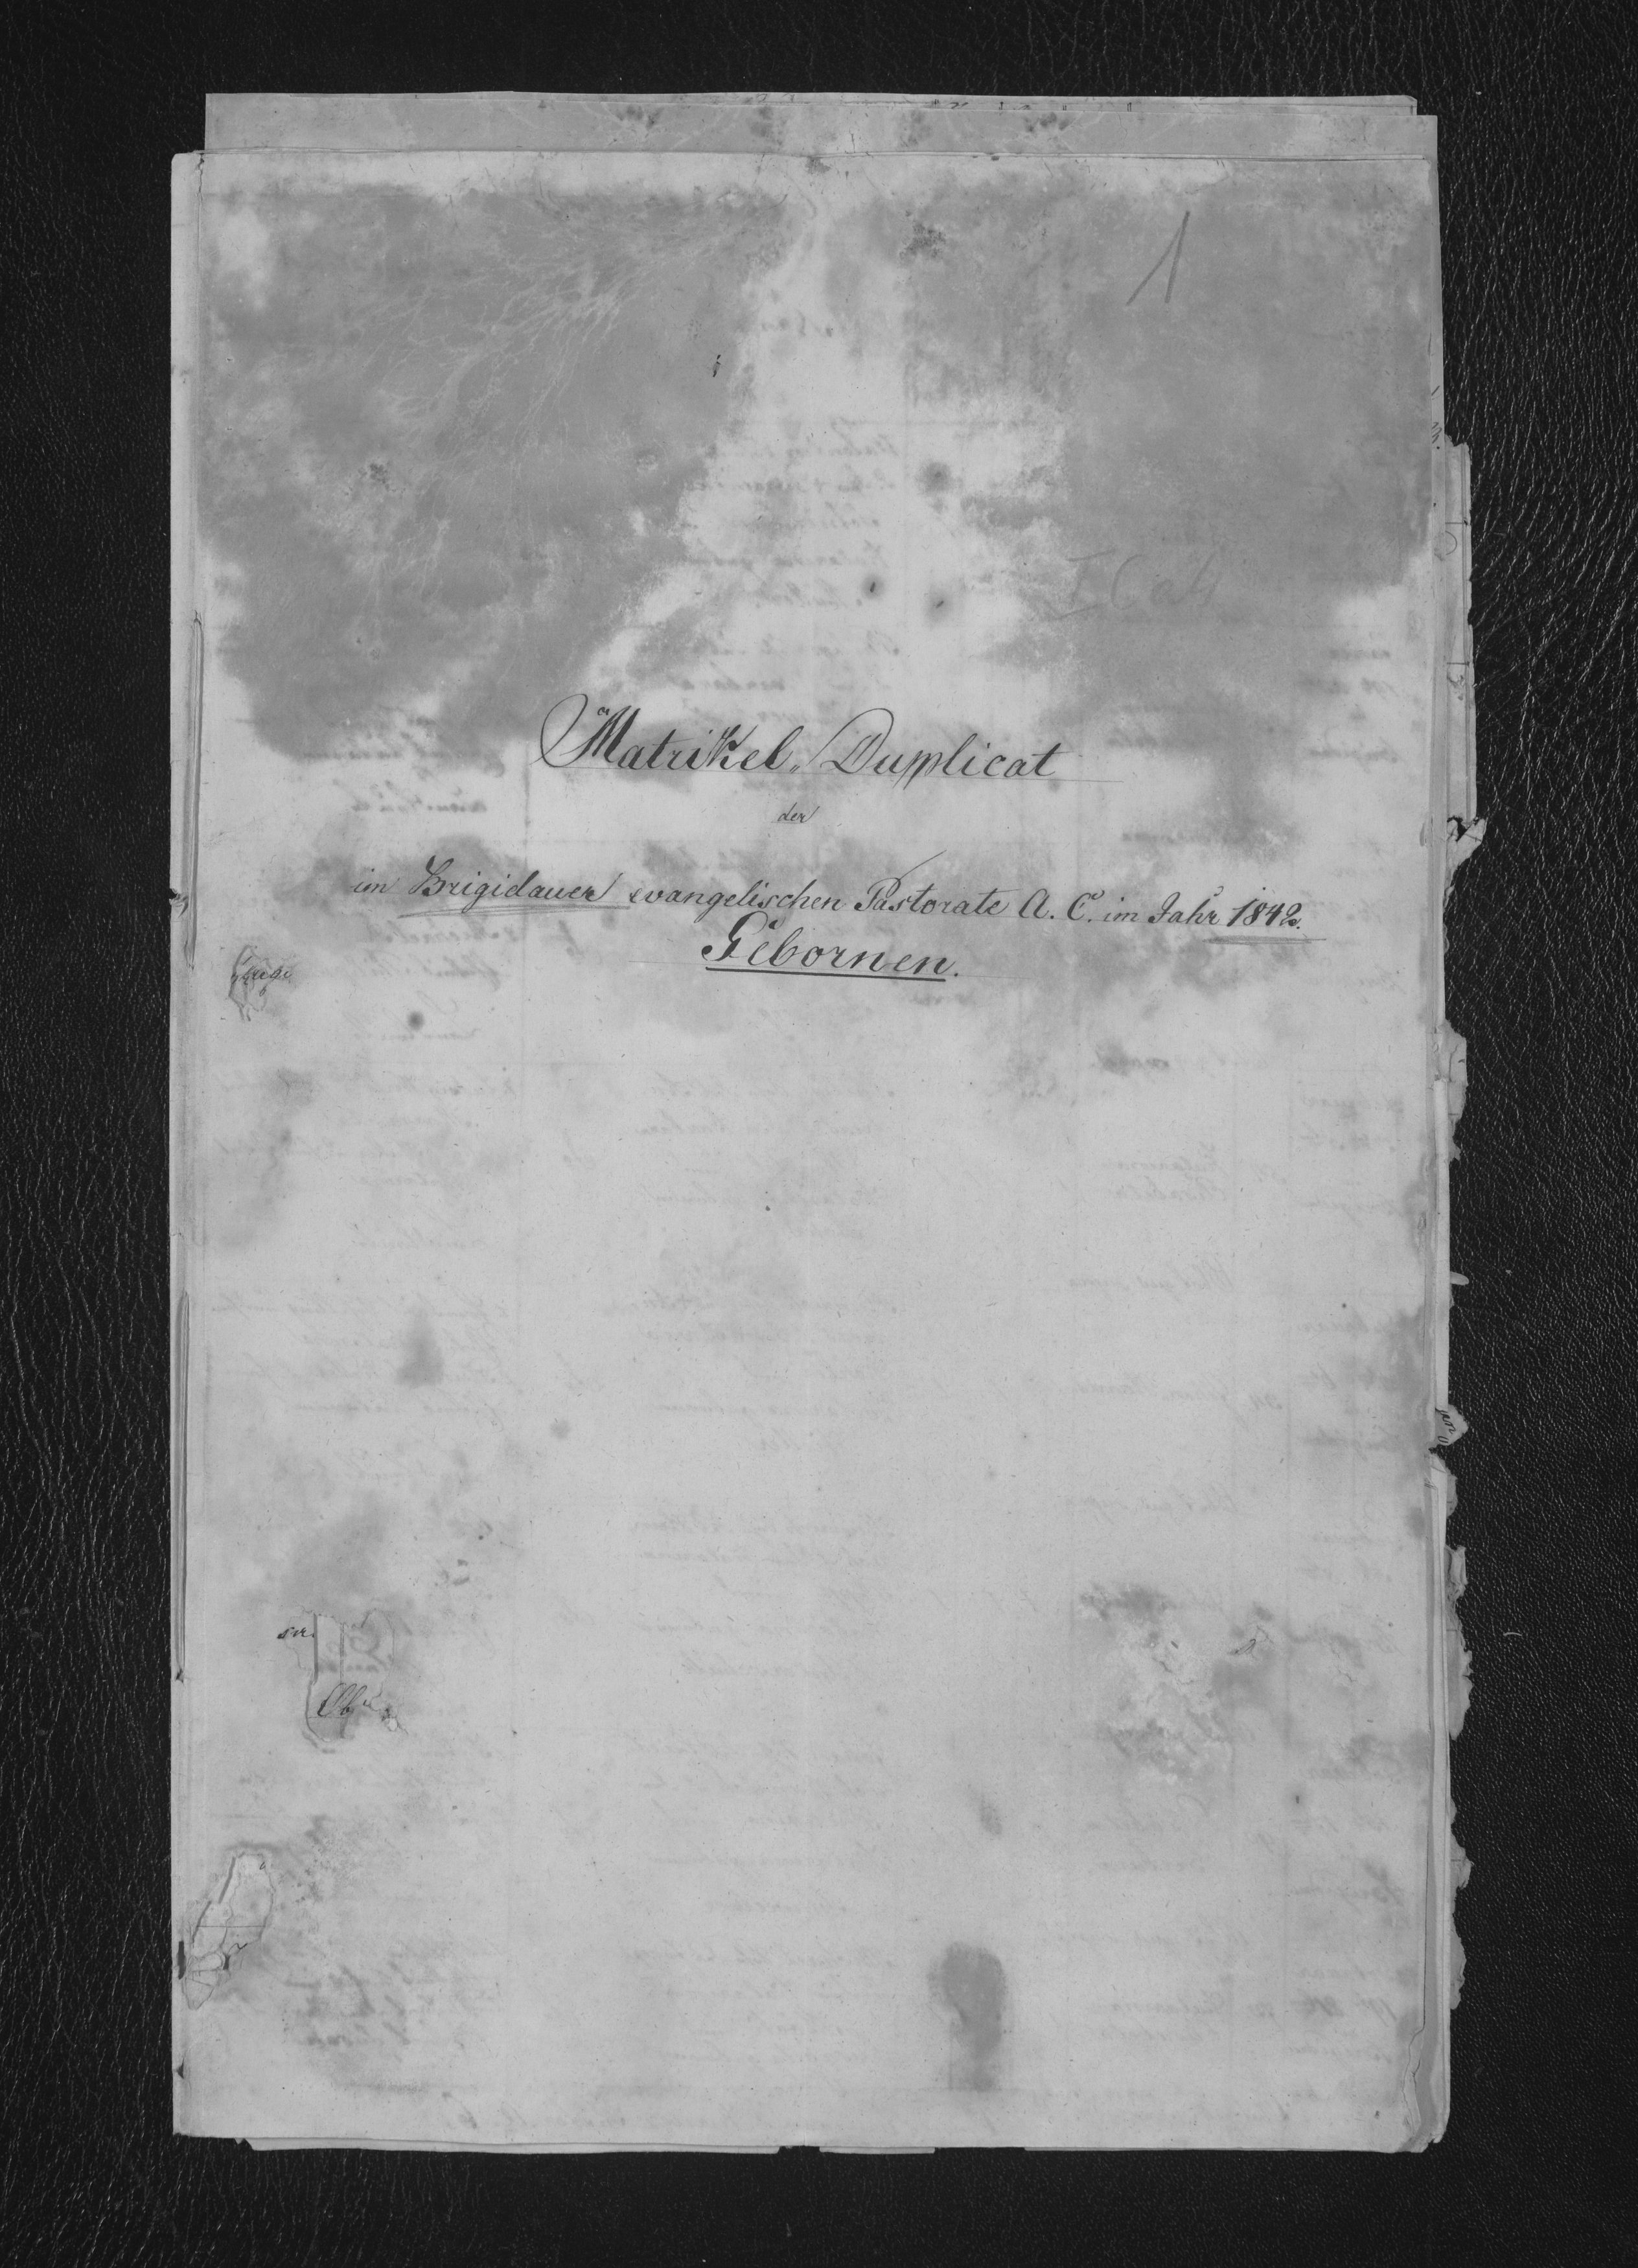 1
Matrikel„Duplicat
der
im Brigidauer evangelischen Pastorate A. C. im Jahr 1842.
Gebornen.